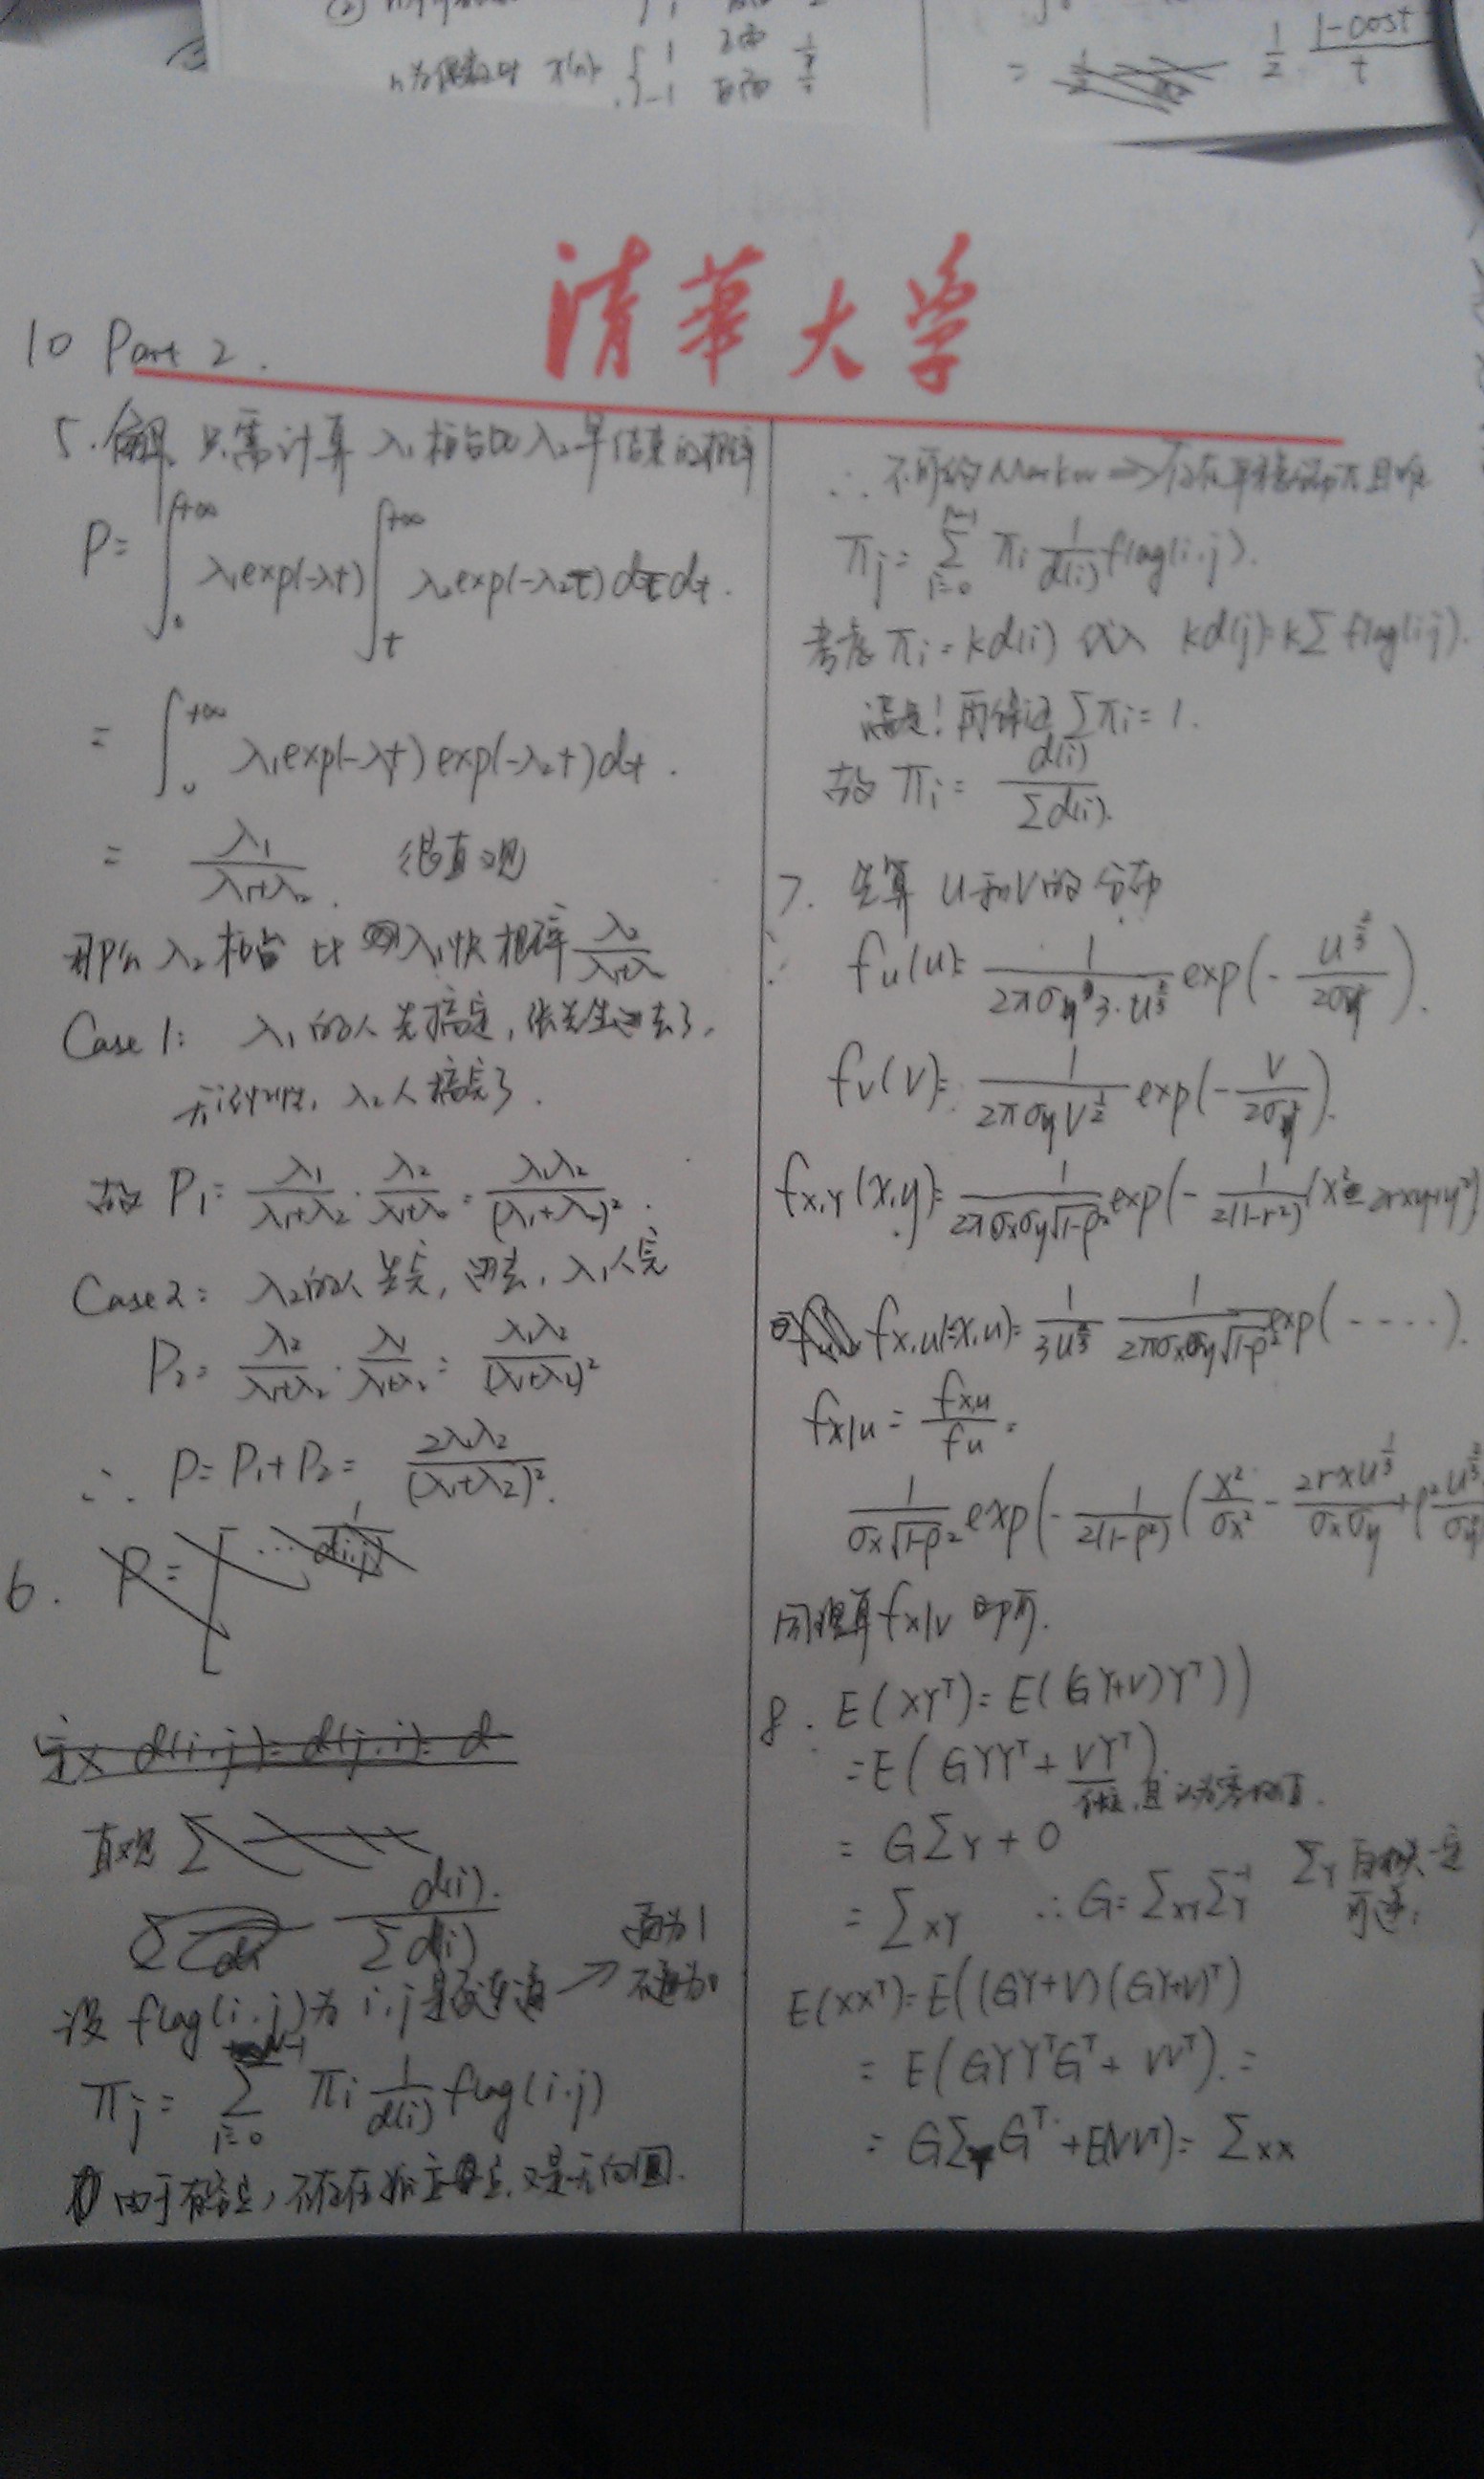 n为偶数时 x(n) { 1 正面 1/2
-1 反面 1/2
= 1/2 (1-cost)/t
清華大学
10 Part 2.
5. 解 只需计算 λ₁柜台比λ₂早结束的概率
P= ∫₀^{+∞} λ₁exp(-λt) ∫_t^{+∞} λ₂exp(-λ₂τ)dτdt.
= ∫₀^{+∞} λ₁exp(-λ₁t) exp(-λ₂t)dt.
= λ₁/(λ₁+λ₂). 很直观
那么 λ₂柜台 比 λ₁快 概率 λ₂/(λ₁+λ₂)
Case 1: λ₁的人先搞定, 张先生进去了,
无记忆性, λ₂人搞完了.
故 P₁= λ₁/(λ₁+λ₂) · λ₂/(λ₁+λ₂) = λ₁λ₂/(λ₁+λ₂)².
Case 2: λ₂的人先完, 进去, λ₁人完
P₂= λ₂/(λ₁+λ₂) · λ₁/(λ₁+λ₂) = λ₁λ₂/(λ₁+λ₂)²
∴ P=P₁+P₂= 2λ₁λ₂/(λ₁+λ₂)².
6.
定义 d(i,j)=d(j,i)=d
直观 Σ
d(i)/Σd(i)
设 flag(i,j)为 i,j是否连通 → 通为1
不通为0
πj= Σ_{i=0}^{N-1} πi 1/d(i) flag(i,j)
由于有 , 不存在孤立点, 又是无向图.
∴ 不可约Markov ⇒ 存在平稳分布π且唯一
πj= Σ_{i=0}^{N-1} πi 1/d(i) flag(i,j).
考虑 πi=kd(i) 代入 kd(j)=kΣflag(i,j).
满足! 再保证 Σπi=1.
故 πi= d(i)/Σd(i).
7. 先算 U和V的分布
∴ f_U(u)= 1/(2πσy 3·u^{2/3}) exp(- u^{2/3}/(2σy²)).
f_V(V)= 1/(2πσy V^{1/2}) exp(- V/(2σy²)).
f_{X,Y}(x,y)= 1/(2πσxσy√(1-ρ²)) exp(- 1/(2(1-r²)) (x²-2rxy+y²)
f_{X,U}(x,u)= 1/(3u^{2/3}) 1/(2πσxσy√(1-ρ²)) exp(-····).
f_{X|U} = f_{X,U}/f_U =
1/(σx√(1-ρ²)) exp(- 1/(2(1-ρ²)) (x²/σx² - 2rxu^{1/3}/(σxσy) + ρ²u^{2/3}/σy²
同理算 f_{X|V} 即可.
8. E(XYᵀ)=E((GY+V)Yᵀ))
=E(GYYᵀ+VYᵀ)
= GΣY+0
= ΣXY ∴ G=ΣXYΣY⁻¹ ΣY 自相关一定
可逆.
E(XXᵀ)=E((GY+V)(GY+V)ᵀ)
= E(GYYᵀGᵀ+VVᵀ). =
= GΣYGᵀ+E(VVᵀ)= ΣXX